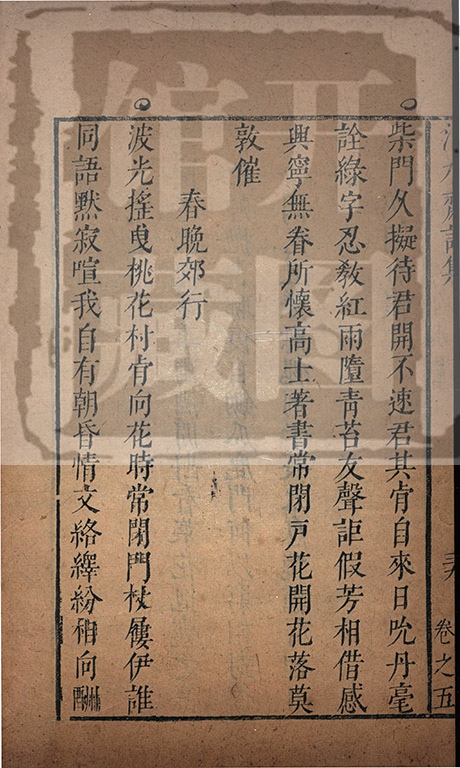 卷之五
柴門久擬待君開不速君其肯自來日吮丹毫
詮綠字忍敎紅雨墮靑苔友聲詎假芳相借感
興寧無眷所懷高士著書常閉戸花開花落莫
敦催
春晚郊行
波光搖曳桃花村肯向花時常閉門杖屨伊誰
同語默寂喧我自有朝昏情文絡繹紛相向酬